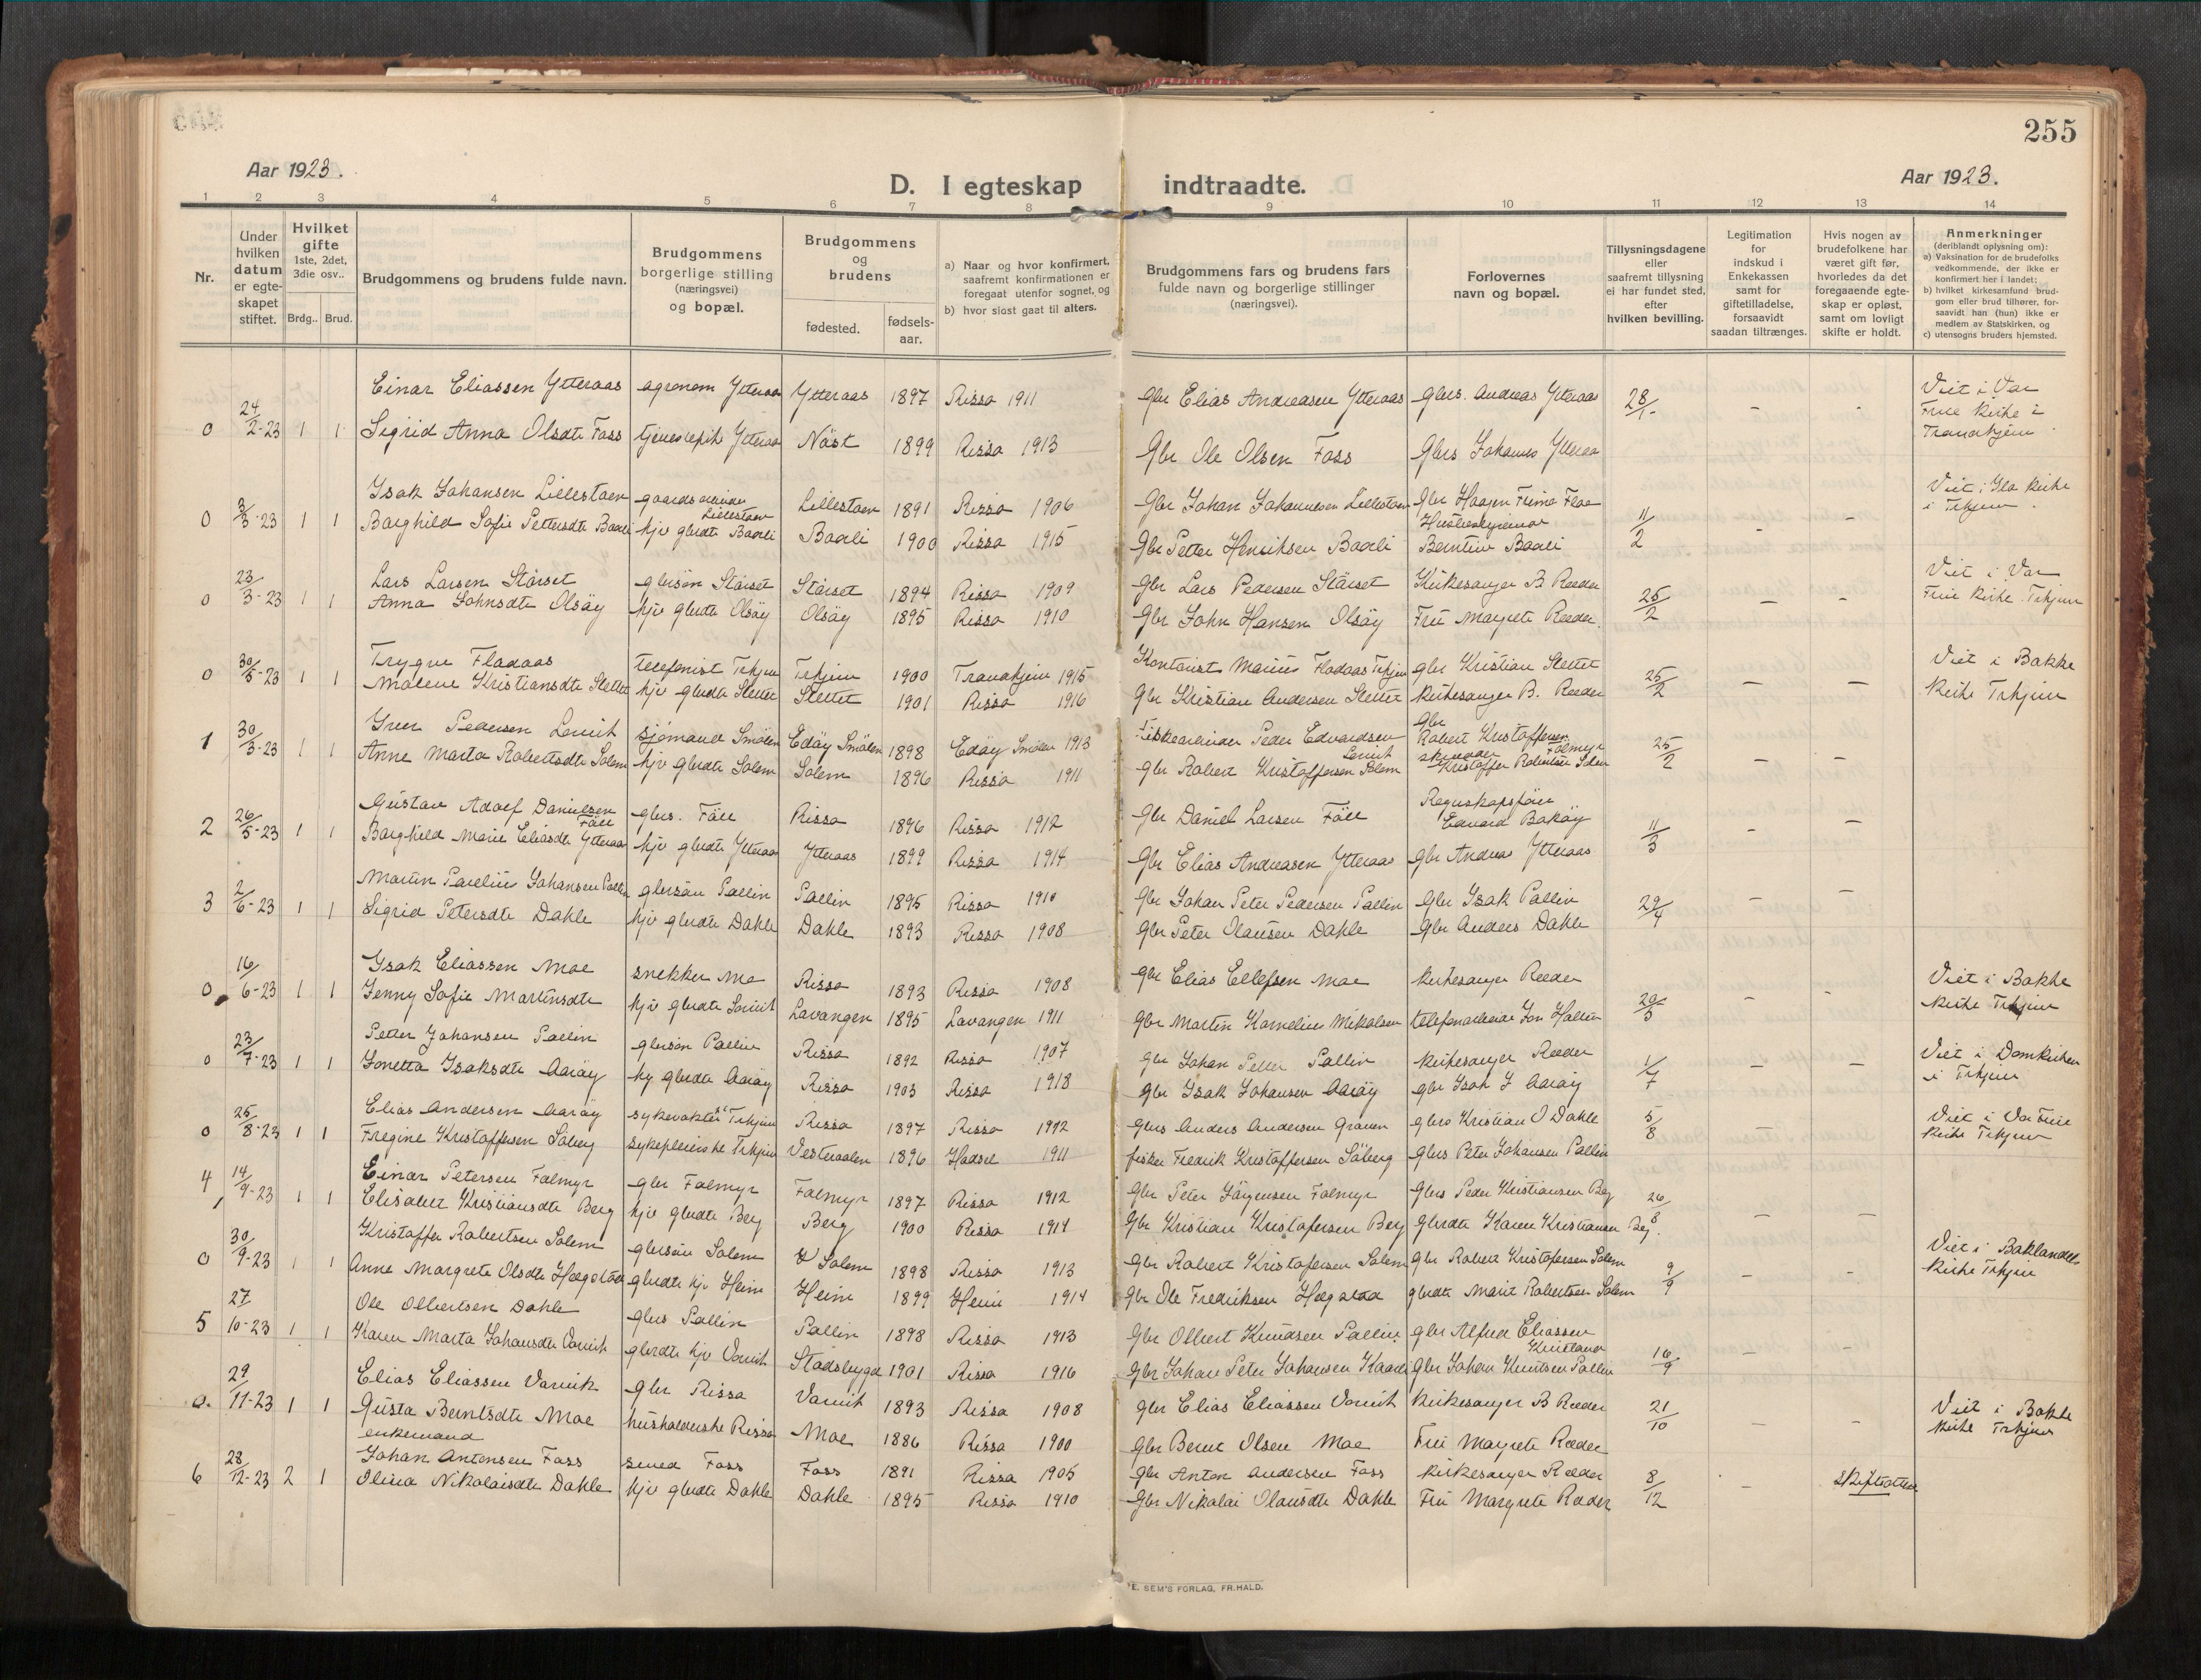 255
Aar 1923.
D. I egteskap indtraadte.
Aar 1923.
1 2 3 4 5 6 7 8 9 10 11 12 13 14
Nr.
Under hvilken datum er egteskapet stiftet.
Hvilket gifte 1ste, 2det, 3die osv..
Brdg.. Brud.
Brudgommens og brudens fulde navn.
Brudgommens borgerlige stilling (næringsvei) og bopæl.
Brudgommens og brudens
fødested. fødselsaar.
a) Naar og hvor konfirmert, saafremt konfirmationen er foregaat utenfor sognet, og
b) hvor sidst gaat til alters.
Brudgommens fars og brudens fars fulde navn og borgerlige stillinger (næringsvei).
Forlovernes navn og bopæl.
Tillysningsdagene eller saafremt tillysning ei har fundet sted, efter hvilken bevilling.
Legitimation for indskud i Enkekassen samt for giftetilladelse, forsaavidt saadan tiltrænges.
Hvis nogen av brudefolkene har været gift før, hvorledes da det foregaaende egteskap er opløst, samt om lovligt skifte er holdt.
Anmerkninger (deriblandt oplysning om):
a) Vaksination for de brudefolks vedkommende, der ikke er konfirmert her i landet;
b) hvilket kirkesamfund brudgom eller brud tilhører, forsaavidt han (hun) ikke er medlem av Statskirken, og
c) utensogns bruders hjemsted.
Einar Eliassen Ytteraas agronom Ytteraas Ytteraas 1897 Rissa 1911 Gbr Elias Andreasen Ytteraas Gbrs. Andreas Ytteraas 28/1- Viet i Vor Frue Kirke i Trondhjem
0 24/2-23 1 1 Sigrid Anna Olsdt Foss tjenestepike Ytteraas Näst 1899 Rissa 1913 Gbr Ole Olsen Foss Gbrs Johannes Ytteraas
Isak Johansen Lillestøen gaardsarbeider Lillestøen Lillestøen 1891 Rissa 1906 Gbr Johan Johannesen Lillestøen Gbr Haagen Flaa 11/2 Viet i Ila Kirke i Trhjem
0 3/3-23 1 1 Borghild Sofie Pettersdt Baarli hjv gbrdt Baarli Baarli 1900 Rissa 1915 Gbr Petter Henriksen Baarli Berntine Baarli
Lars Larsen Stårset gbrsøn Stårset Stårset 1894 Rissa 1909 Gbr Lars Pedersen Stårset Kirkesanger B Røeder 25/2 Viet i Vor Frue Kirke Trhjem
0 23/3-23 1 1 Anna Johnsdt Olsöy hjv gbrdt Olsöy Olsöy 1895 Rissa 1910 Gbr John Hansen Olsöy Fru Margrete Røeder.
Trygve Fladaas telefonist Trhjem Trhjem 1900 Trondhjem 1915 Kontorist Marius Fladaas Trhjem gbr Kristian Slettet 25/2 Viet i Bakke Kirke Trhjem
0 30/5-23 1 1 Malene Kristiansdt Slettet hjv gbrdt Slettet Slettet 1901 Rissa 1916 Gbr Kristian Andersen Slettet Kirkesanger B. Røeder
Iver Pedersen Lervik sjømand Smölen Edöy Smölen 1898 Edöy Smölen 1913 Fiskearbeider Peder Edvardsen Lervik Gbr Robert Kristoffersen Falmyr 25/2
1 30/3-23 1 1 Anne Marta Robertsdt Solem hjv gbrdt Solem Solem 1896 Rissa 1911 gbr Robert Kristoffersen Solem Kristoffer Robertsen Solem
Gustav Adolf Danielsen Fäll gbrs. Fäll Rissa 1896 Rissa 1912 Gbr Daniel Larsen Fäll Regnskapsfører Edvard Bakøy 11/3
2 26/5-23 1 1 Borghild Marie Eliasdt Ytteraas hjv gbrdt Ytteraas Ytteraas 1899 Rissa 1914 Gbr Elias Andreasen Ytteraas gbr Andreas Ytteraas
Martin Paulius Johansen Pallin gbrsøn Pallin Pallin 1895 Rissa 1910 Gbr Johan Peter Pedersen Pallin Gbr Isak Pallin 29/4
3 2/6-23 1 1 Sigrid Petersdt Dahle hjv gbrdt Dahle Dahle 1893 Rissa 1908 Gbr Peter Olausen Dahle Gbr Anders Dahle
Isak Eliassen Moe snekker Moe Rissa 1893 Rissa 1908 Gbr Elias Ellefsen Moe Kirkesanger Røeder 20/5 Viet i Bakke Kirke Trhjem
0 16/6-23 1 1 Jenny Sofie Martinsdt hjv gbrdt Lavangen 1895 Lavangen 1911 Gbr Martin Kornelius Mikalsen telefonarbeider Jon
Petter Johansen Pallin gbrsøn Pallin Rissa 1892 Rissa 1907 gbr Johan Petter Pallin Kirkesanger Røeder 1/7 Viet i Domkirken i Trhjem
0 23/7-23 1 1 Jonetta Isaksdt Aaröy hjv gbrdt Aaröy Rissa 1903 Rissa 1918 Gbr Isak Johansen Aaröy gbr Isak J Aaröy
Elias Andersen Aaröy sykevokter Trhjem Rissa 1897 Rissa 1912 gbrs Anders Andersen Graven gbrs Kristian O Dahle 5/8 Viet i Vor Frue Kirke Trhjem
0 25/8-23 1 1 Fregine Kristoffersen Söberg sykepleierske Trhjem Vesteraalen 1896 Hadsel 1911 fisker Fredrik Kristoffersen Söberg gbrs Peter Johansen Pallin
4 14/9-23 1 1 Einar Petersen Falmyr gbr Falmyr Falmyr 1897 Rissa 1912 Gbr Peter Jörgensen Falmyr Gbrs Peder Kristiansen Berg 26/8
Elisabet Kristiansdt Berg hjv gbrdt Berg Berg 1900 Rissa 1914 Gbr Kristian Kristofersen Berg gbrdt Karen Kristiansen Berg.
Kristoffer Robertsen Solem gbrsøn Solem Solem 1898 Rissa 1913 Gbr Robert Kristofersen Solem gbr Robert Kristofersen Solem 9/9 Viet i Baklandets Kirke Trhjem
0 30/9-23 1 1 Anne Margrete Olsdt Hægstad gbrdt hjv Heim Heim 1899 Heim 1914 Gbr Ole Fredriksen Hægstad gbrdt Marit Robertsen Solem
Ole Olbertsen Dahle gbrs Pallin Pallin 1898 Rissa 1913 Gbr Olbert Knudsen Pallin gbr Alfred Eliassen 16/9
5 27/10-23 1 1 Karen Marta Johansdt Vorvik gbrdt hjv Vorvik Stadsbygd 1901 Rissa 1916 Gbr Johan Peter Johansen Gbr Johan Knutsen Pallin
Elias Eliassen Vorvik Gbr Rissa Vorvik 1893 Rissa 1908 Gbr Elias Eliassen Vorvik Kirkesanger B Røeder 21/10 Viet i Bakke Kirke Trhjem
0. 29/11-23 1 1 Gusta Berntsdt Moe husholderske Rissa Moe 1886 Rissa 1900 Gbr Bernt Olsen Moe Fru Margrete Røeder
enkemand
Johan Antonsen Foss smed Foss Foss 1891 Rissa 1905 Gbr Anton Andersen Foss Kirkesanger Røeder 8/12 Skifteatten
6 28/12-23 2 1 Olina Nikolaisdt Dahle hjv gbrdt Dahle Dahle 1895 Rissa 1910 Gbr Nikolai Olausdt Dahle Fru Margrete Røder
E. SEM'S FORLAG, FR.HALD.